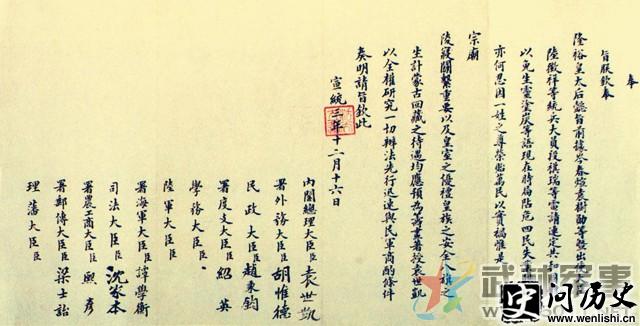 奉
旨朕欽奉
隆裕皇太后懿旨前據岑春煊袁樹勛等暨出使大臣
陸徵祥等統兵大員段祺瑞等電請速定共和
以免生靈塗炭等語現在時局阽危四民失業
亦何忍因一姓之尊榮貽萬民以實禍惟是
宗廟
陵寢關繫重要以及皇室之優禮皇族之安全八旗
生計蒙古回藏之待遇均應預為籌畫著授袁世凱
以全權研究一切辦法先行迅速與民軍商酌條件
奏明請旨欽此
宣統三年十二月十六日
內閣總理大臣臣袁世凱
署外務大臣臣胡惟德
民政大臣臣趙秉鈞
署度支大臣臣紹英
學務大臣臣
陸軍大臣臣
署海軍大臣臣譚學衡
司法大臣臣沈家本
署農工商大臣臣熙彥
署郵傳大臣臣梁士詒
理藩大臣臣
武林军事
史问历史
www.wenlishi.cn